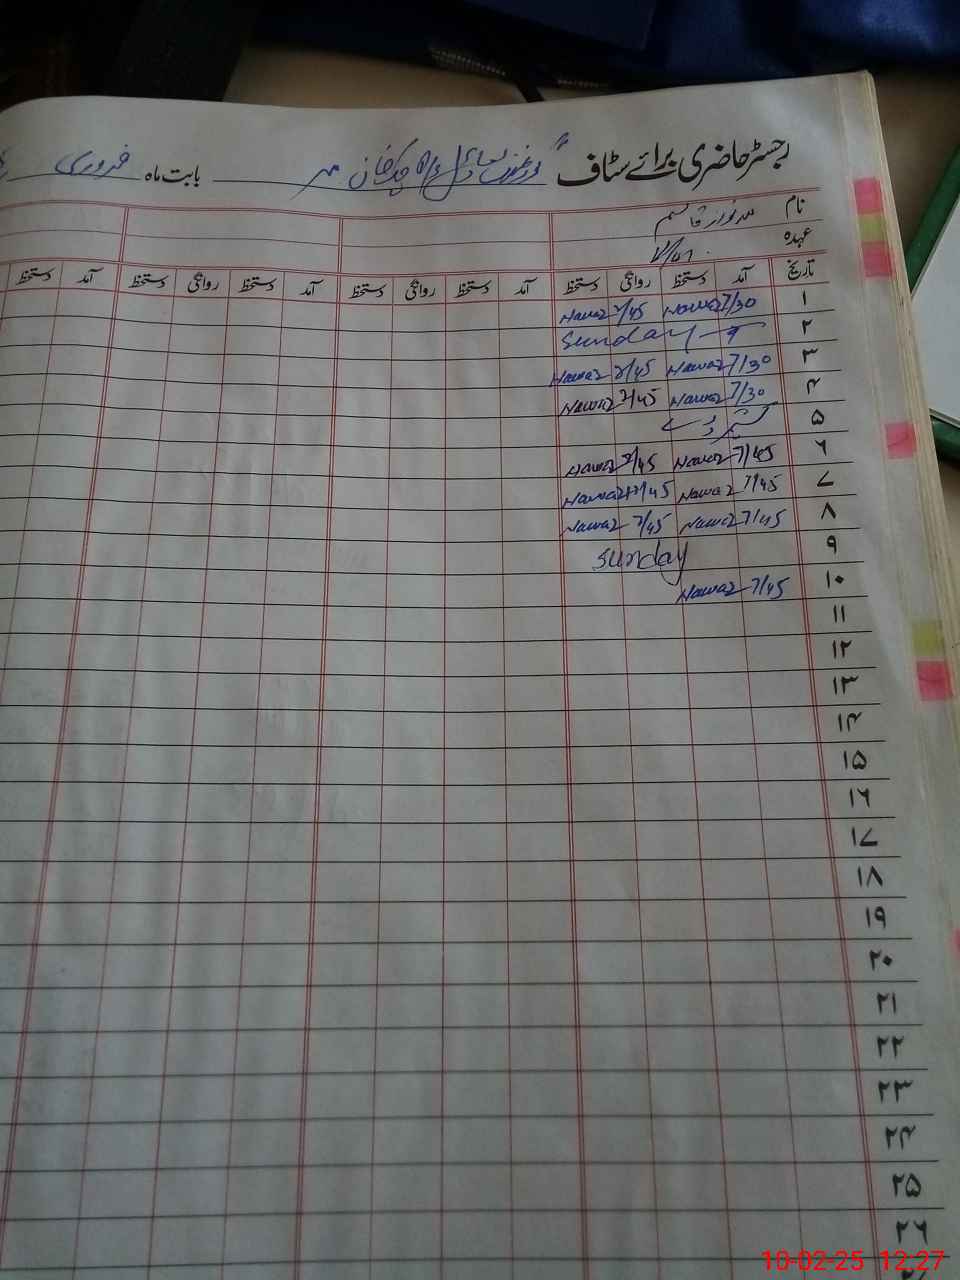 رجسٹر حاضری برائے سٹاف گورنمنٹ چک خان بابت ماہ فروری
نام
عہدہ
تاریخ آمد دستخط روانگی دستخط آمد دستخط روانگی دستخط آمد دستخط روانگی دستخط آمد دستخط
۱ 7/30 Nawaz /45 Nawaz
۲ Sunday
۳ 7/30 Nawaz /45 Nawaz
۴ 7/30 Nawaz /45 Nawaz
۵ کشمیر ڈے
۶ 7/45 Nawaz /45 Nawaz
۷ 7/45 Nawaz /45 Nawaz
۸ 7/45 Nawaz /45 Nawaz
۹ Sunday
۱۰ 7/45 Nawaz
۱۱
۱۲
۱۳
۱۴
۱۵
۱۶
۱۷
۱۸
۱۹
۲۰
۲۱
۲۲
۲۳
۲۴
۲۵
۲۶
10-02-25 12:27